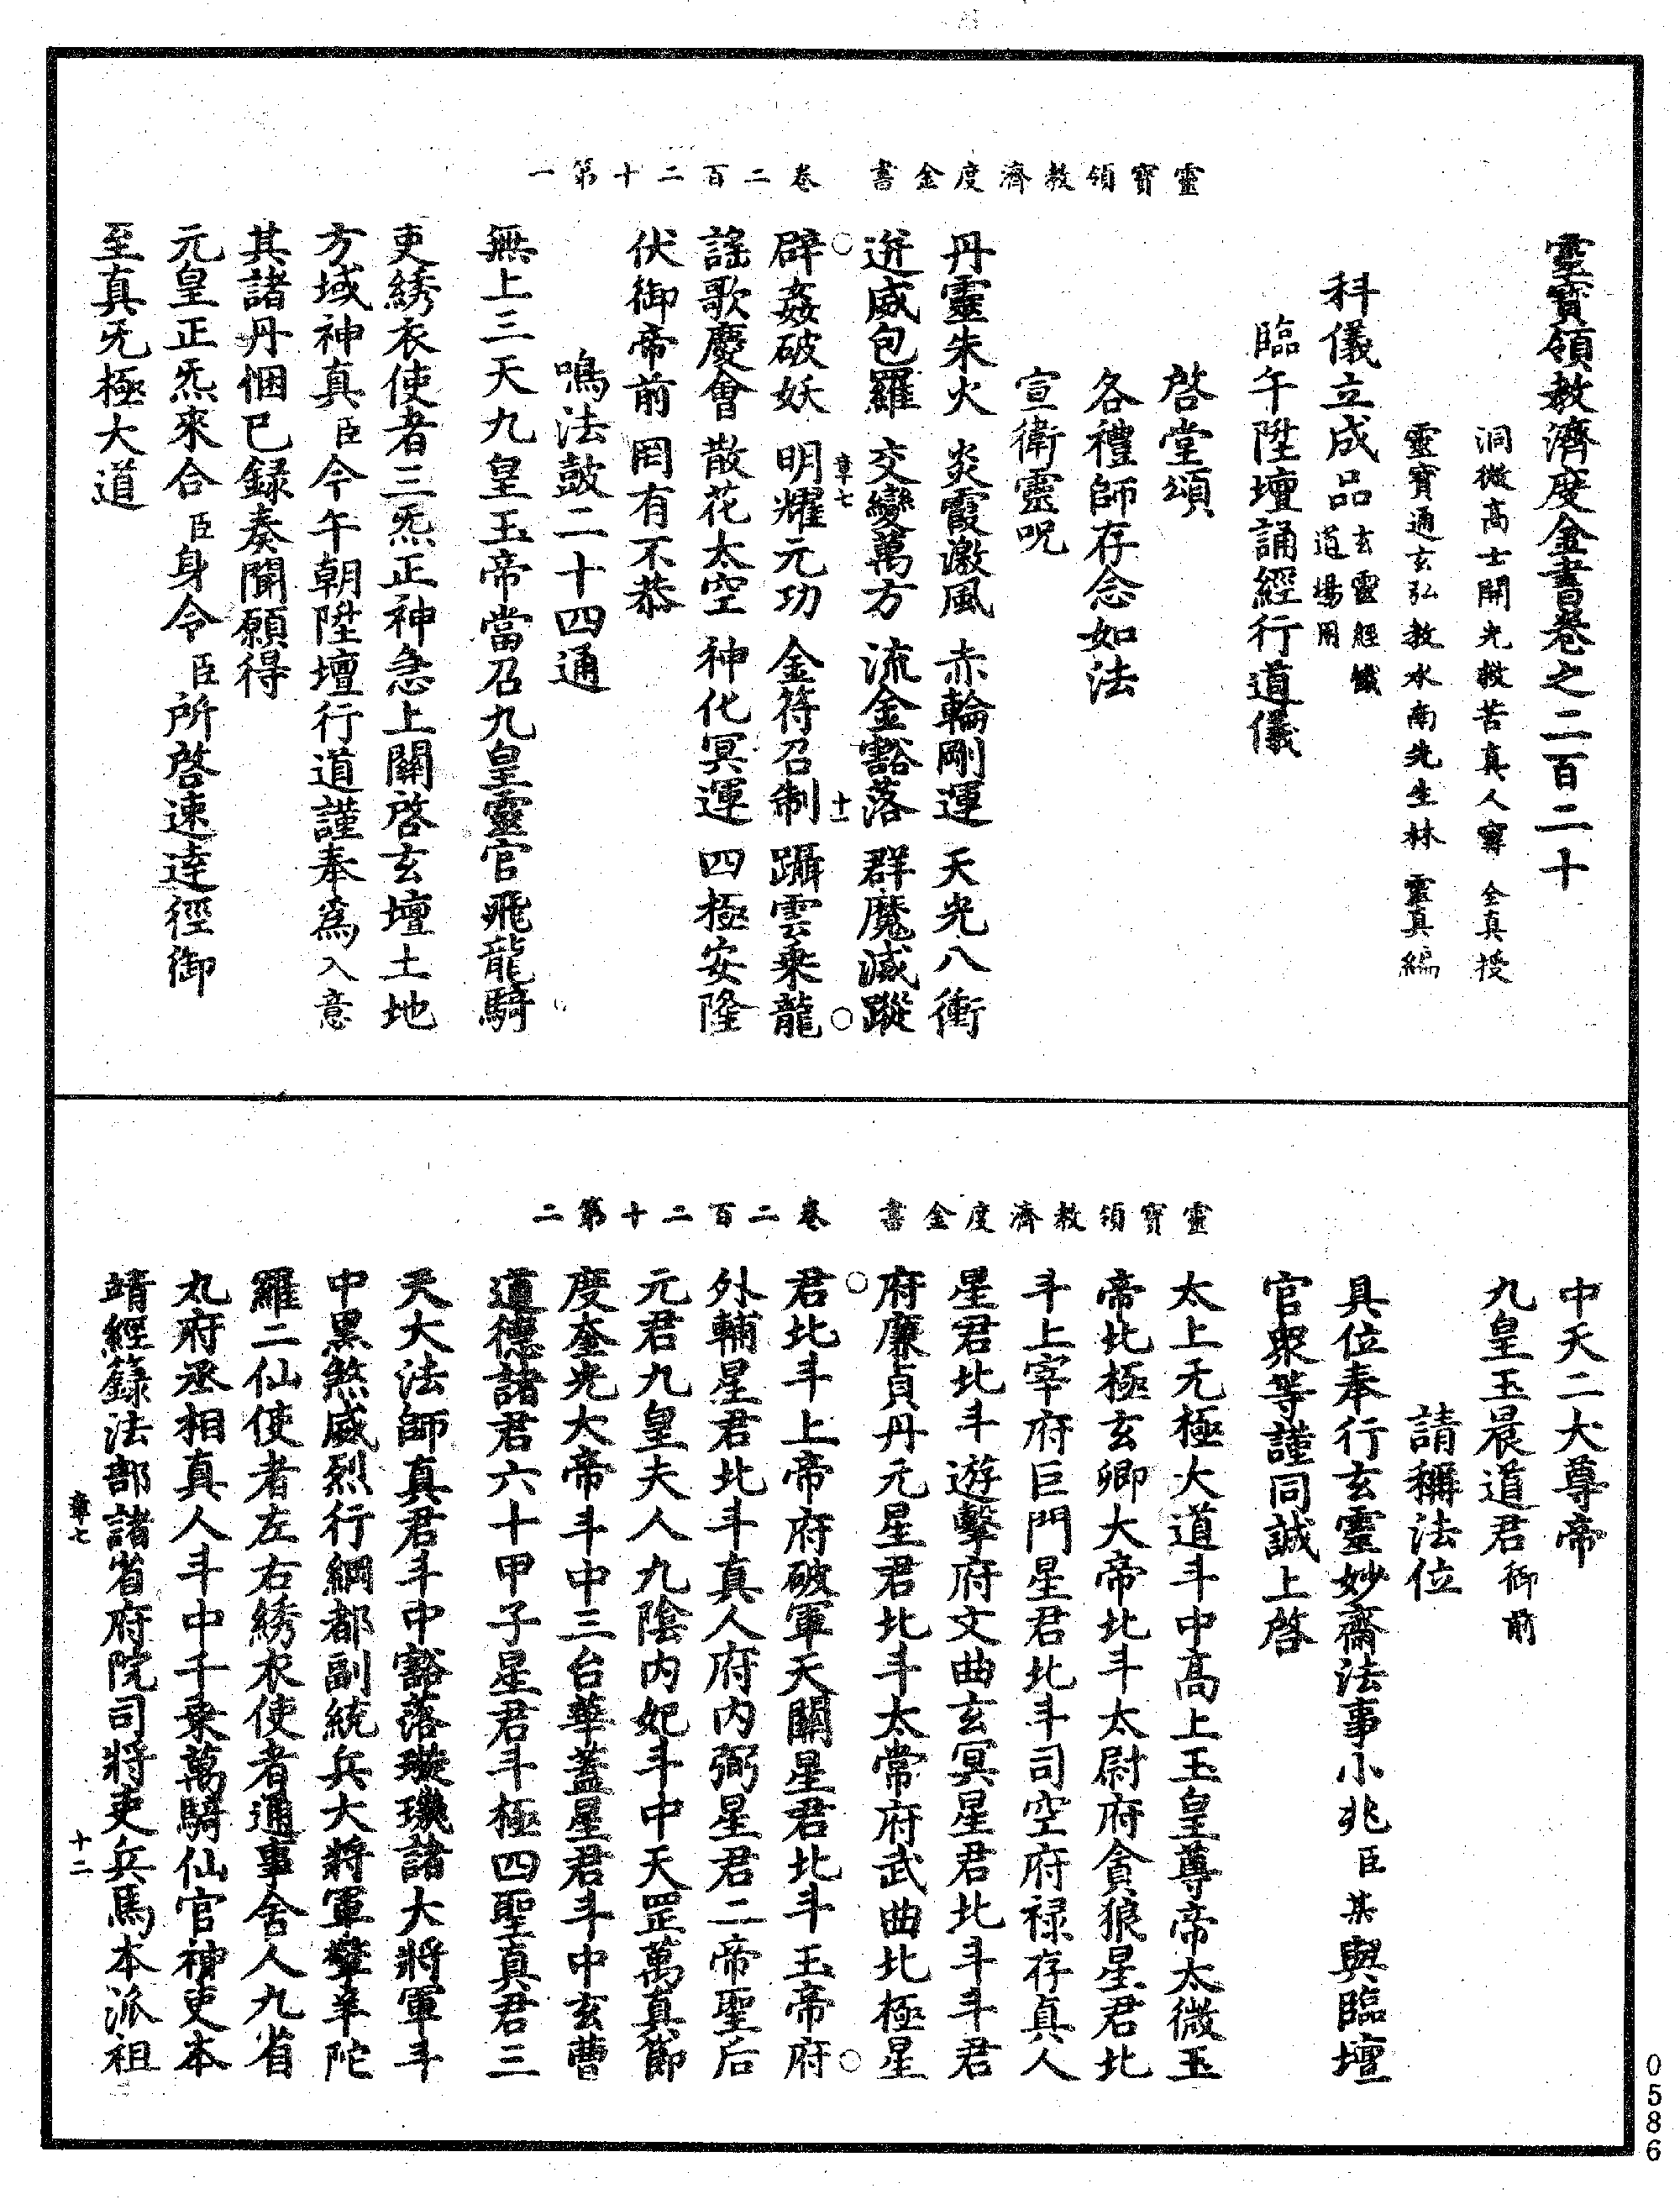 靈寶領教濟度金書　卷二百二十第一
靈寶領教濟度金書卷之二百二十
洞微高士開光救苦真人甯　全真授
靈寶通玄弘教水南先生林　靈真編
科儀立成品玄靈經懺道場用
臨午陞壇誦經行道儀
啓堂頌
各禮師存念如法
宣衛靈呪
丹靈朱火　炎霞激風　赤輪剛運　天光八衝
逬威包羅　交變萬方　流金豁落　群魔滅蹤
章七　十一
辟姦破妖　明耀元功　金符召制　躡雲乘龍
謠歌慶會　散花太空　神化冥運　四極安隆
伏御帝前　罔有不恭
鳴法鼓二十四通
無上三天九皇玉帝當召九皇靈官飛龍騎
吏綉衣使者三炁正神急上關啓玄壇土地
方域神真臣今午朝陞壇行道謹奉爲入意
其諸丹悃已録奏聞願得
元皇正炁來合臣身令臣所啓速達徑御
至真无極大道
靈寶領教濟度金書　卷二百二十第二
中天二大尊帝
九皇玉晨道君御前
請稱法位
具位奉行玄靈妙齋法事小兆臣某與臨壇
官衆等謹同誠上啓
太上无極大道斗中高上玉皇尊帝太微玉
帝北極玄卿大帝北斗太尉府貪狼星君北
斗上宰府巨門星君北斗司空府禄存真人
星君北斗遊擊府文曲玄冥星君北斗斗君
府廉貞丹元星君北斗太常府武曲北極星
君北斗上帝府破軍天關星君北斗玉帝府
外輔星君北斗真人府内弼星君二帝聖后
元君九皇夫人九陰内妃斗中天罡萬真節
度奎光大帝斗中三台華蓋星君斗中玄曹
道德諸君六十甲子星君斗極四聖真君三
天大法師真君斗中豁落璇璣諸大將軍斗
中黑煞威烈行綱都副統兵大將軍擎羊陀
羅二仙使者左右綉衣使者通事舍人九省
九府丞相真人斗中千乘萬騎仙官神吏本
靖經籙法部諸省府院司將吏兵馬本派祖
章七　十二
0586